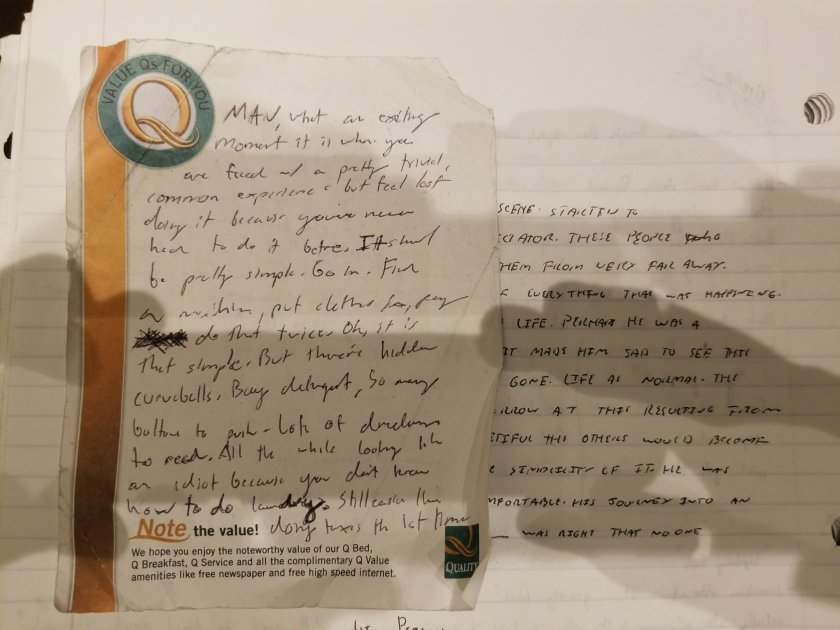 VALUE Qs FOR YOU
Q
MAN, what an exiting
moment it is when you
are faced w/ a pretty trivial,
common experience but feel lost
doing it because you've never
had to do it before. It should
be pretty simple. Go in. Find
a machine, put clothes in, pay
do that twice. Oh, it is
that simple. But there're hidden
curveballs. Buy detergent, so many
buttons to push. Lots of directions
to read. All the while looking like
an idiot because you don't know
how to do laundry. Still easier than
doing taxes the 1st time
Note the value!
We hope you enjoy the noteworthy value of our Q Bed,
Q Breakfast, Q Service and all the complimentary Q Value
amenities like free newspaper and free high speed internet.
QUALITY
SCENE. STARTED TO
THESE PEOPLE
THEM FROM VERY FAR AWAY.
EVERYTHING THAT WAS HAPPENING.
LIFE. PERHAPS HE WAS A
IT MADE HIM SAD TO SEE THIS
GONE. LIFE AS NORMAL. THE
AT THIS RESULTING FROM
THE OTHERS WOULD BECOME
SIMPLICITY OF IT. HE WAS
HIS JOURNEY INTO AN
WAS RIGHT THAT NO ONE